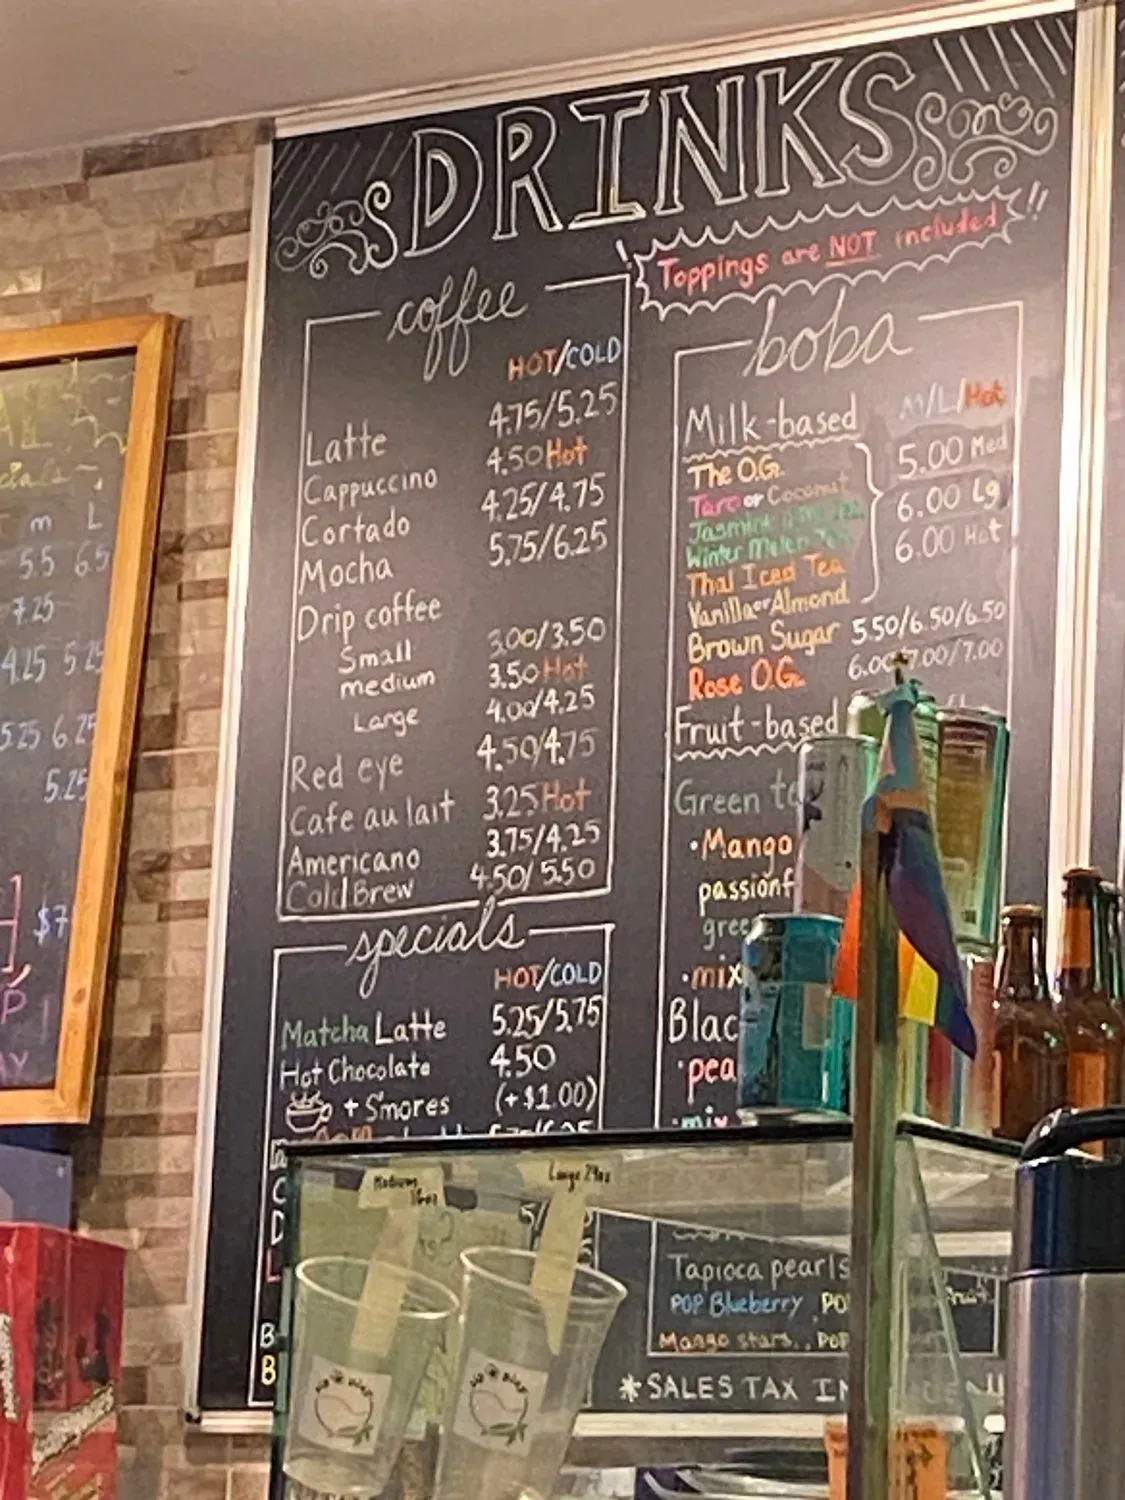 DRINKS
Toppings are NOT included!!
coffee
HOT/COLD
Latte 4.75/5.25
Cappuccino 4.50 Hot
Cortado 4.25/4.75
Mocha 5.75/6.25
Drip coffee
Small 3.00/3.50
medium 3.50 Hot
Large 4.00/4.25
Red eye 4.50/4.75
Cafe au lait 3.25 Hot
Americano 3.75/4.25
Cold Brew 4.50/5.50
specials
HOT/COLD
Matcha Latte 5.25/5.75
Hot Chocolate 4.50
+ S'mores (+$1.00)
boba
Milk-based M/L/Hot
The O.G. 5.00 Med
Taro or Coconut 6.00 Lg
Jasmine
Winter Melon 6.00 Hot
Thai Iced Tea
Vanilla or Almond
Brown Sugar 5.50/6.50/6.50
Rose O.G. 6.00/7.00/7.00
Fruit-based
Green te
• Mango
passionf
gree
• mix
Blac
• pea
• mix
Tapioca pearls
POP Blueberry, PO
Mango stars.. POP
*SALES TAX IN
m L
5.5 6.5
7.25
4.25 5.25
5.25 6.25
5.25
$7
Medium 16oz
Large 24oz